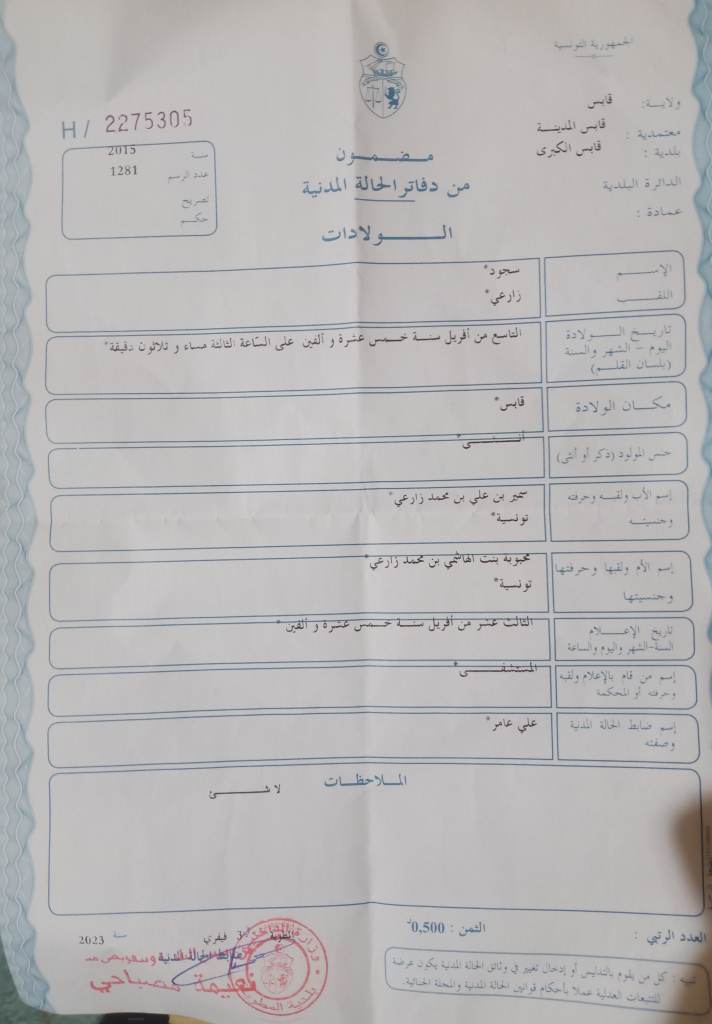 الجمهورية التونسية
ولاية: قابس
معتمدية : قابس المدينة
بلدية : قابس الكبرى
الدائرة البلدية
عمادة :
H / 2275305
سنة 2015
عدد الرسم 1281
تصريح
حكم
مضمون
من دفاتر الحالة المدنية
الولادات
الإسم سجود*
اللقب زارعي*
تاريخ الولادة
اليوم – الشهر والسنة
(بلسان القلم)
التاسع من أفريل سنة خمس عشرة و ألفين على الساعة الثالثة مساء و ثلاثون دقيقة*
مكان الولادة قابس*
جنس المولود (ذكر أو أنثى) أنثى*
إسم الأب ولقبه وحرفته سمير بن علي بن محمد زارعي*
وجنسيته تونسية*
إسم الأم ولقبها وحرفتها محبوبة بنت الهاشمي بن محمد زارعي*
وجنسيتها تونسية*
تاريخ الإعلام الثالث عشر من أفريل سنة خمس عشرة و ألفين *
السنة-الشهر واليوم والساعة
إسم من قام بالإعلام ولقبه المستشفى*
وحرفته أو المحكمة
إسم ضابط الحالة المدنية علي عامر*
وصفته
الملاحظات
لا شئ
العدد الرتبي :
الثمن : 0,500د
المطوية في 3 فيفري سنة 2023
ضابط الحالة المدنية
نعيمة مصباحي
تنبيه : كل من يقوم بالتدليس أو إدخال تغيير في وثائق الحالة المدنية يكون عرضة
للتتبعات العدلية عملا بأحكام قوانين الحالة المدنية والمجلة الجنائية.